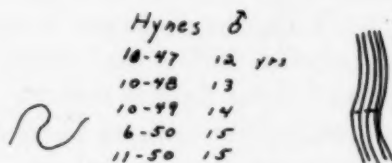 Hynes ♂
10-47 12 yrs
10-48 13
10-49 14
6-50 15
11-50 15